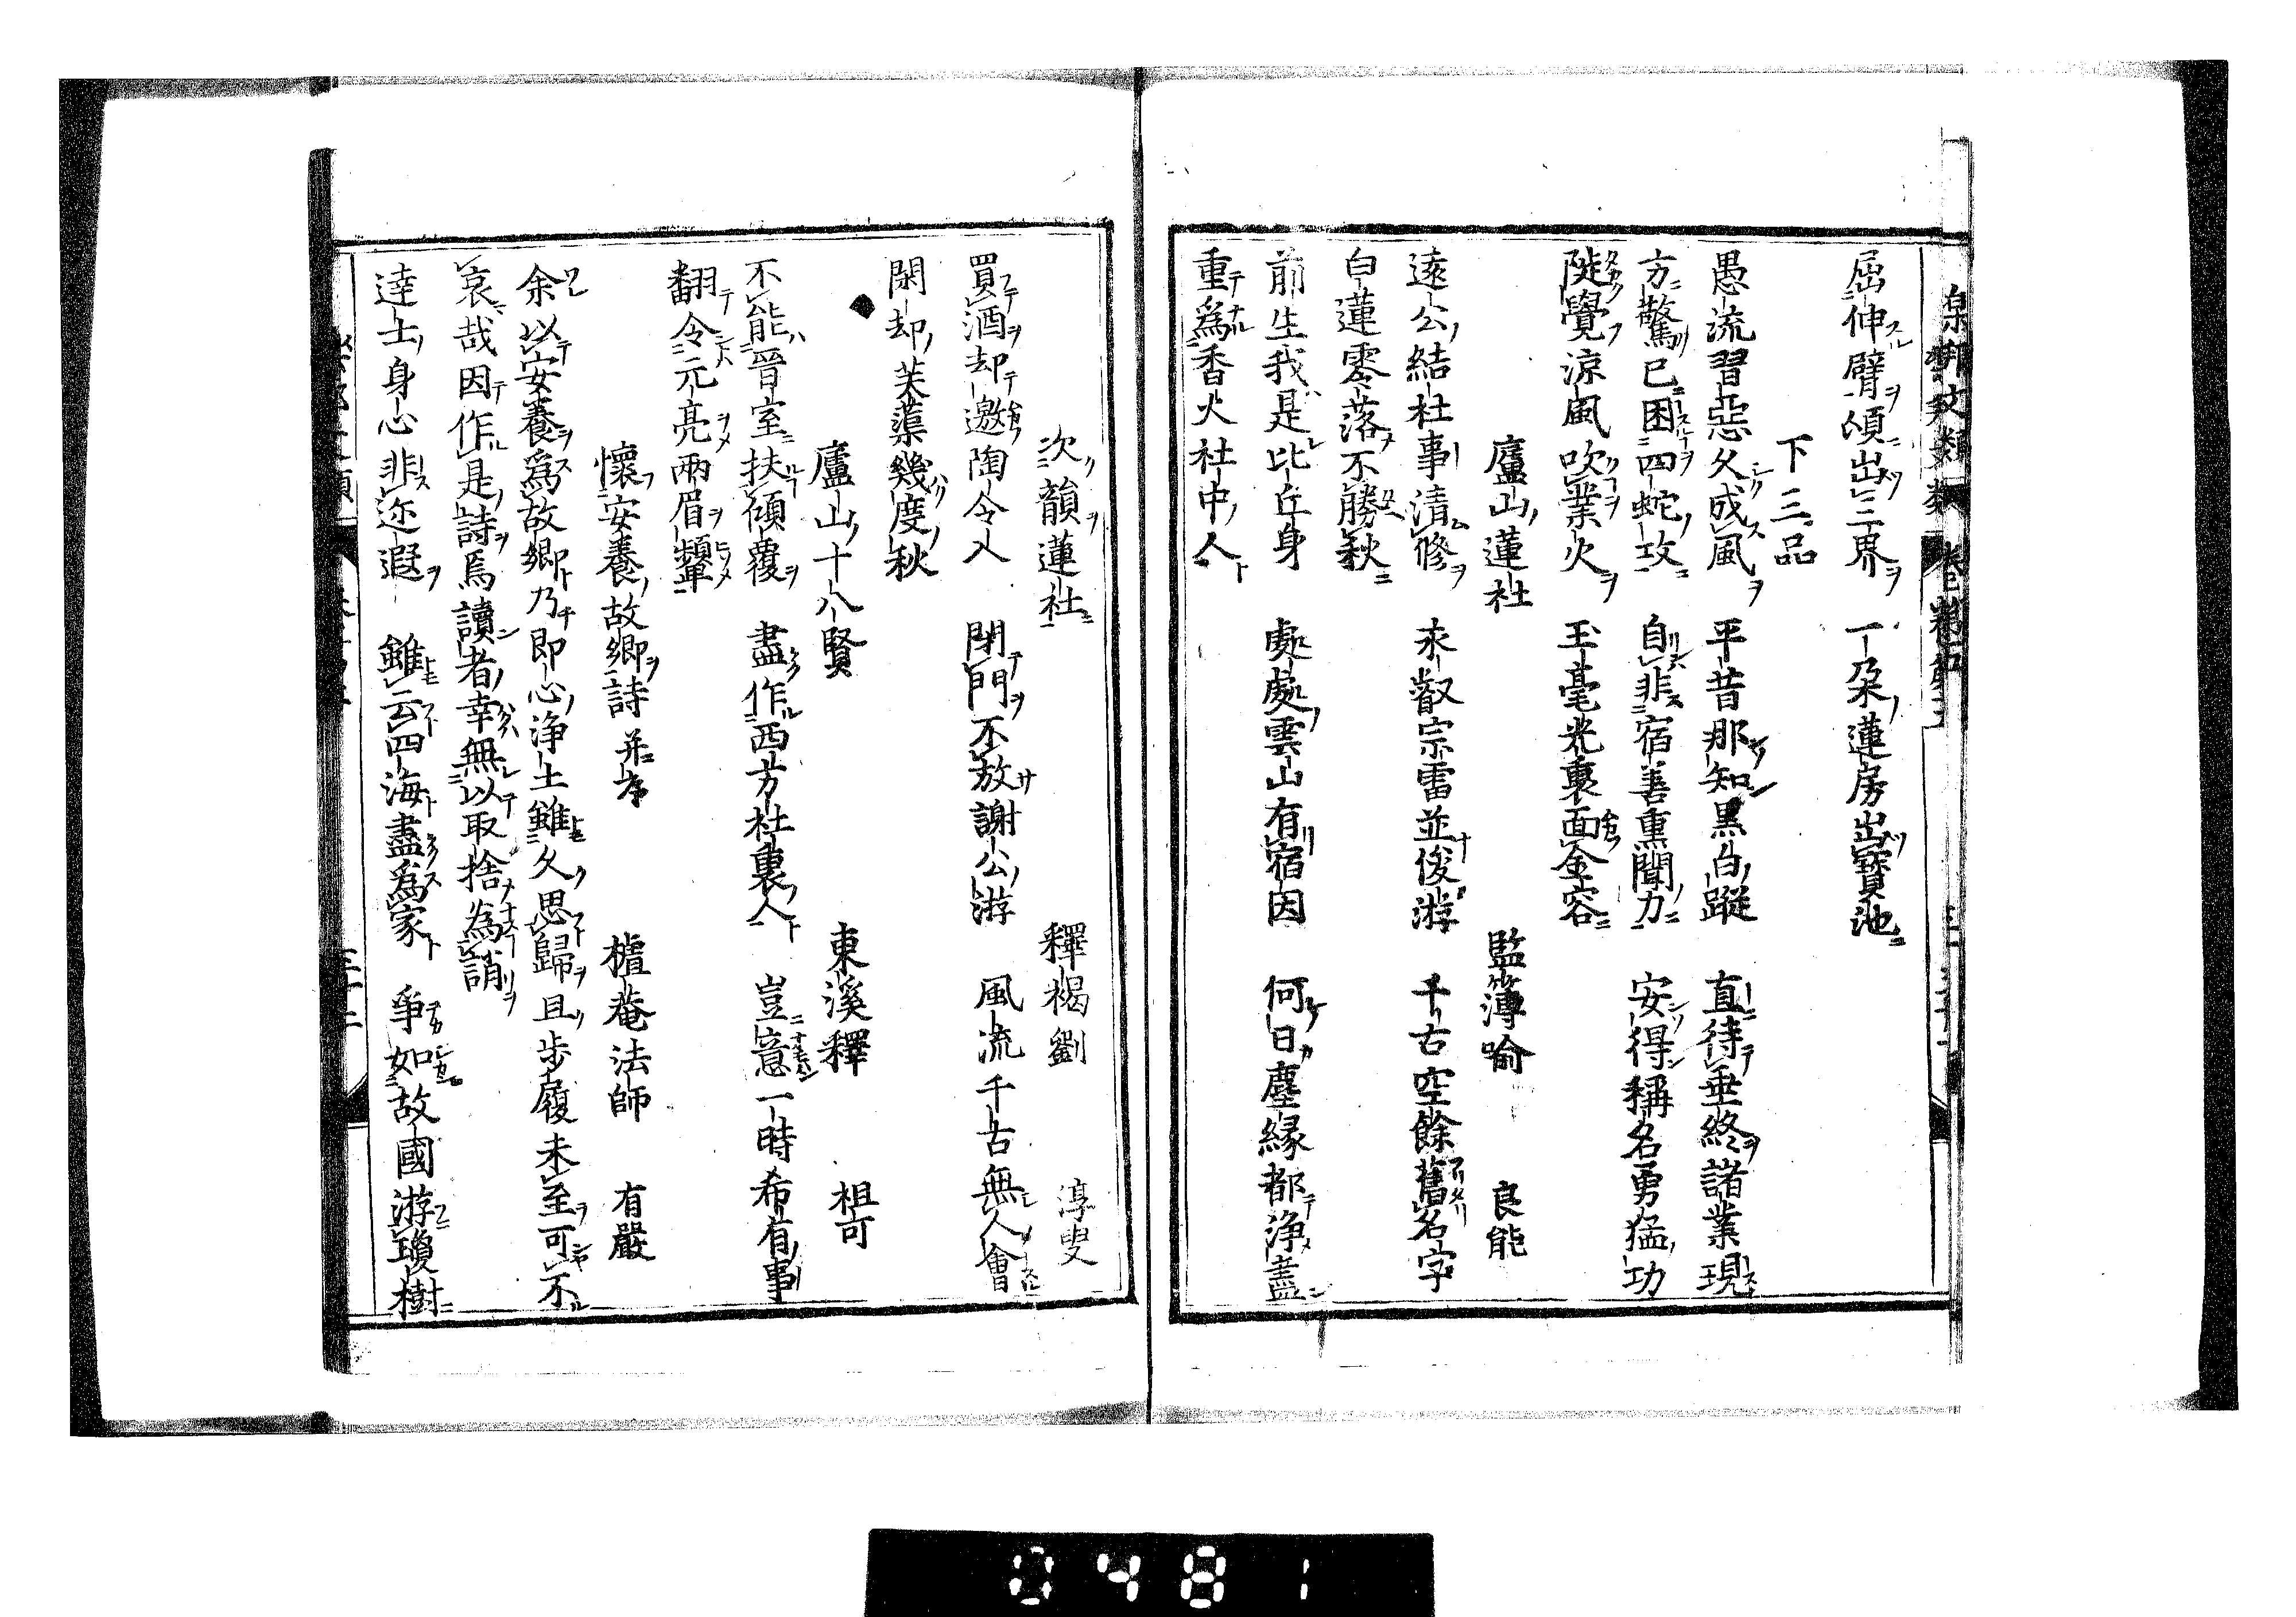 屈伸臂頃出三界　一朶蓮房出寶池
下三品
愚流習惡久成風　平昔那知黒白蹤　直待垂終諸業現
方驚已困四蛇攻　自非宿善熏聞力　安得稱名勇猛功
陡覺涼風吹業火　玉毫光裏面金容
廬山蓮社　監簿喻　良能
遠公結社事清修　永叡宗雷並俊游　千古空餘舊名字
白蓮零落不勝秋
前生我是比丘身　處處雲山有宿因　何日塵縁都淨盡
重爲香火社中人
次韻蓮社　釋褐劉　淳叟
買酒却邀陶令入　閉門不放謝公游　風流千古無人會
閑却芙蕖幾度秋
廬山十八賢　東溪釋　祖可
不能晉室扶傾覆　盡作西方社裏人　豈意一時希有事
翻令元亮兩眉顰
懷安養故鄉詩并序　樝菴法師　有嚴
余以安養爲故鄉乃即心淨土雖久思歸且步履未至可不
哀哉因作是詩焉讀者幸無以取捨為誚
達士身心非迩遐　雖云四海盡爲家　爭如故國游瓊樹
0481